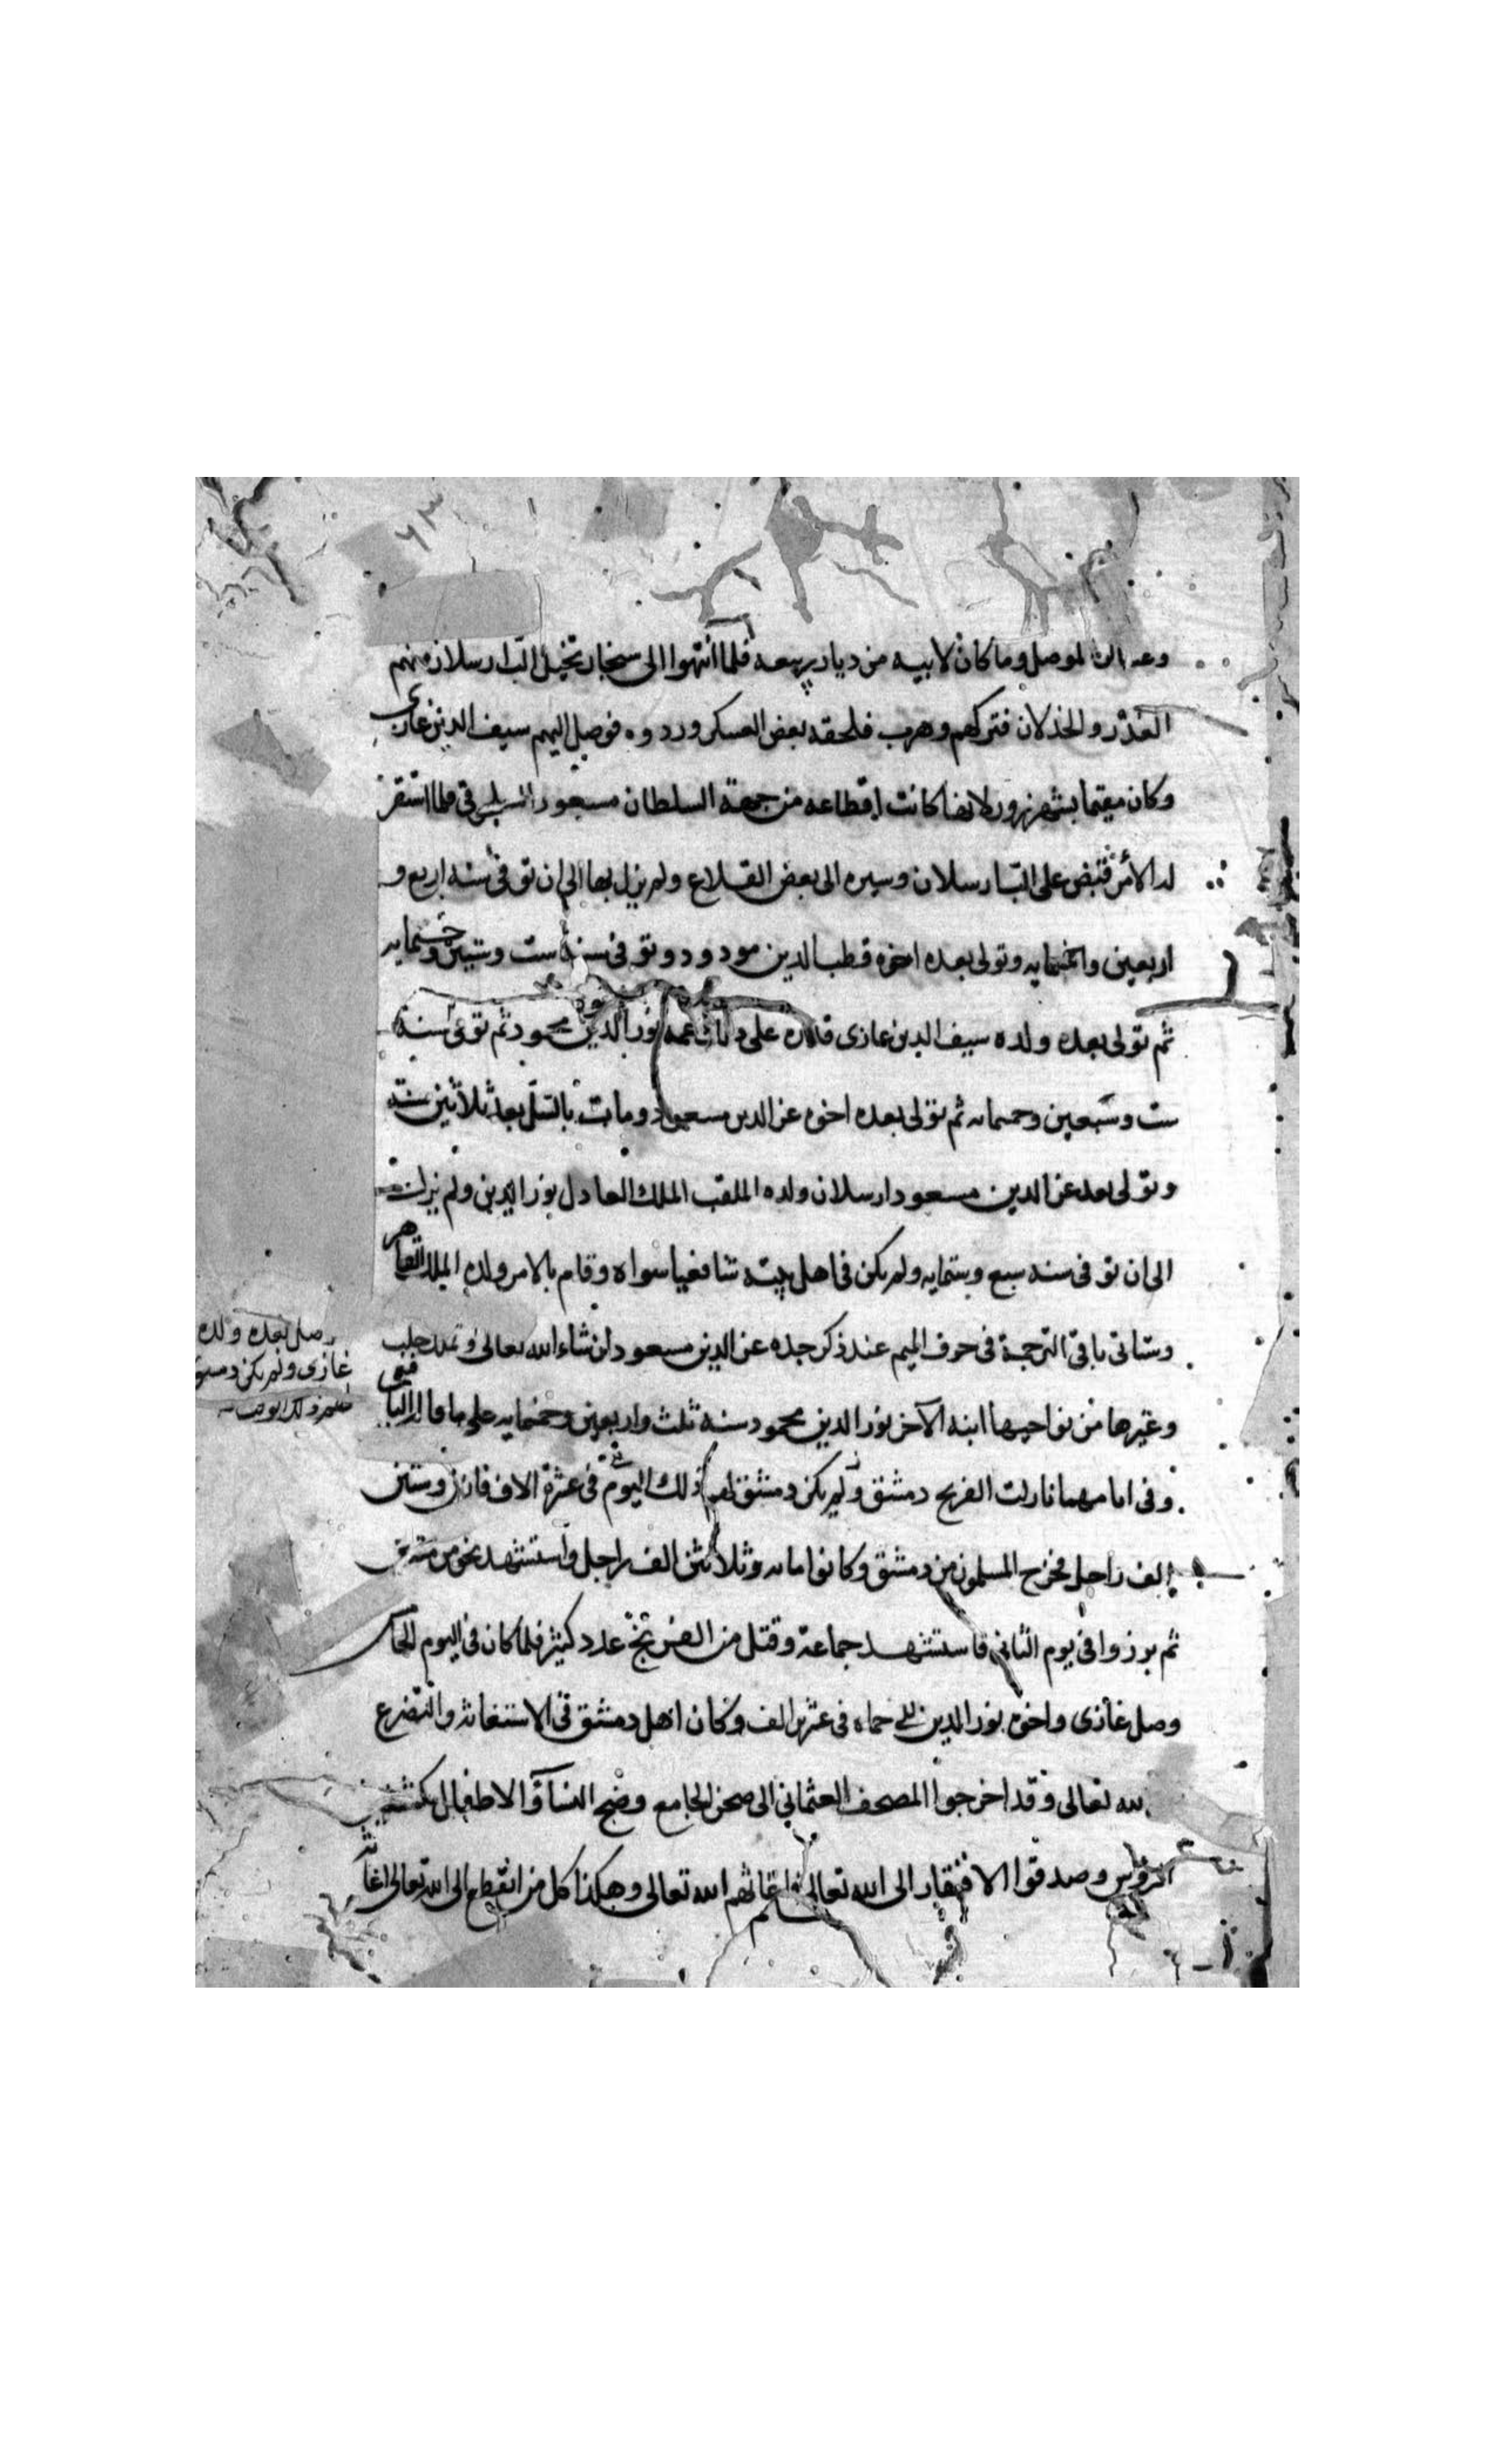 ٦٣
الموصل وما كان لابيه من ديار ربيعه فلما انتهوا الى سنجار تخيل الب ارسلان منهم
الغدر والخذلان فتركهم وهرب فلحقه بعض العسكر وردوه فوصل اليهم سيف الدين غازى
وكان مقيما بشهرزور لانها كانت اقطاعه من جهة السلطان مسعود السلجوقى فلما استقر
له الأمر قبض على الب ارسلان وسيره الى بعض القلاع ولم يزل بها الى ان توفى سنه اربع و
اربعين وخمسمايه وتولى بعده اخوه قطب الدين مودود وتوفى سنة ست وستين وخمسمايه
ثم تولى بعده ولده سيف الدين غازى قلده على ذلك عمه نور الدين محمود ثم توفى سنة
ست وسبعين وخمسمايه ثم تولى بعده اخوه عز الدين مسعود ومات بالسل بعد ثلاثين سنة
وتولى بعد عز الدين مسعود ارسلان ولده الملقب الملك العادل نور الدين ولم يزل
الى ان توفى سنه سبع وستمايه ولم يكن فى اهل بيته شافعيا سواه وقام بالامر ولده الملك القاهر
وستاتى باقى الترجمة فى حرف الميم عند ذكر جده عز الدين مسعود ان شاء الله تعالى وتملك حلب
وغيرها من نواحيها ابنه الآخر نور الدين محمود سنة ثلث واربعين وخمسمايه على ما قال اليافعى
وفى ايامهما نازلت الفرنج دمشق ولم يكن دمشق ذلك اليوم فى عشرة الاف فارس وستين
الف راجل فخرج المسلمون من دمشق وكانوا مايه وثلاثين الف راجل واستشهد نحو من
ثم برزوا فى يوم الثانى فاستشهد جماعة وقتل من الفرنج عدد كثير فلما كان فى اليوم الخامس
وصل غازى واخوه نور الدين الى حماه فى عشرين الف وكان اهل دمشق فى الاستغاثه والتضرع
لله تعالى وقد اخرجوا المصحف العثمانى الى صحن الجامع وضج النساء والاطفال مكشفين
الرؤس وصدقوا الافتقار الى الله تعالى فاغاثهم الله تعالى وهكذا كل من انقطع الى الله تعالى اغاثه
بعده ولده
غازى ولم يكن دمشق